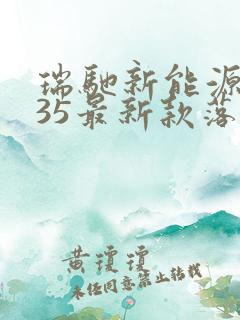 瑞馳新能源
35最新款落
黄琼琼
未经同意禁止转载